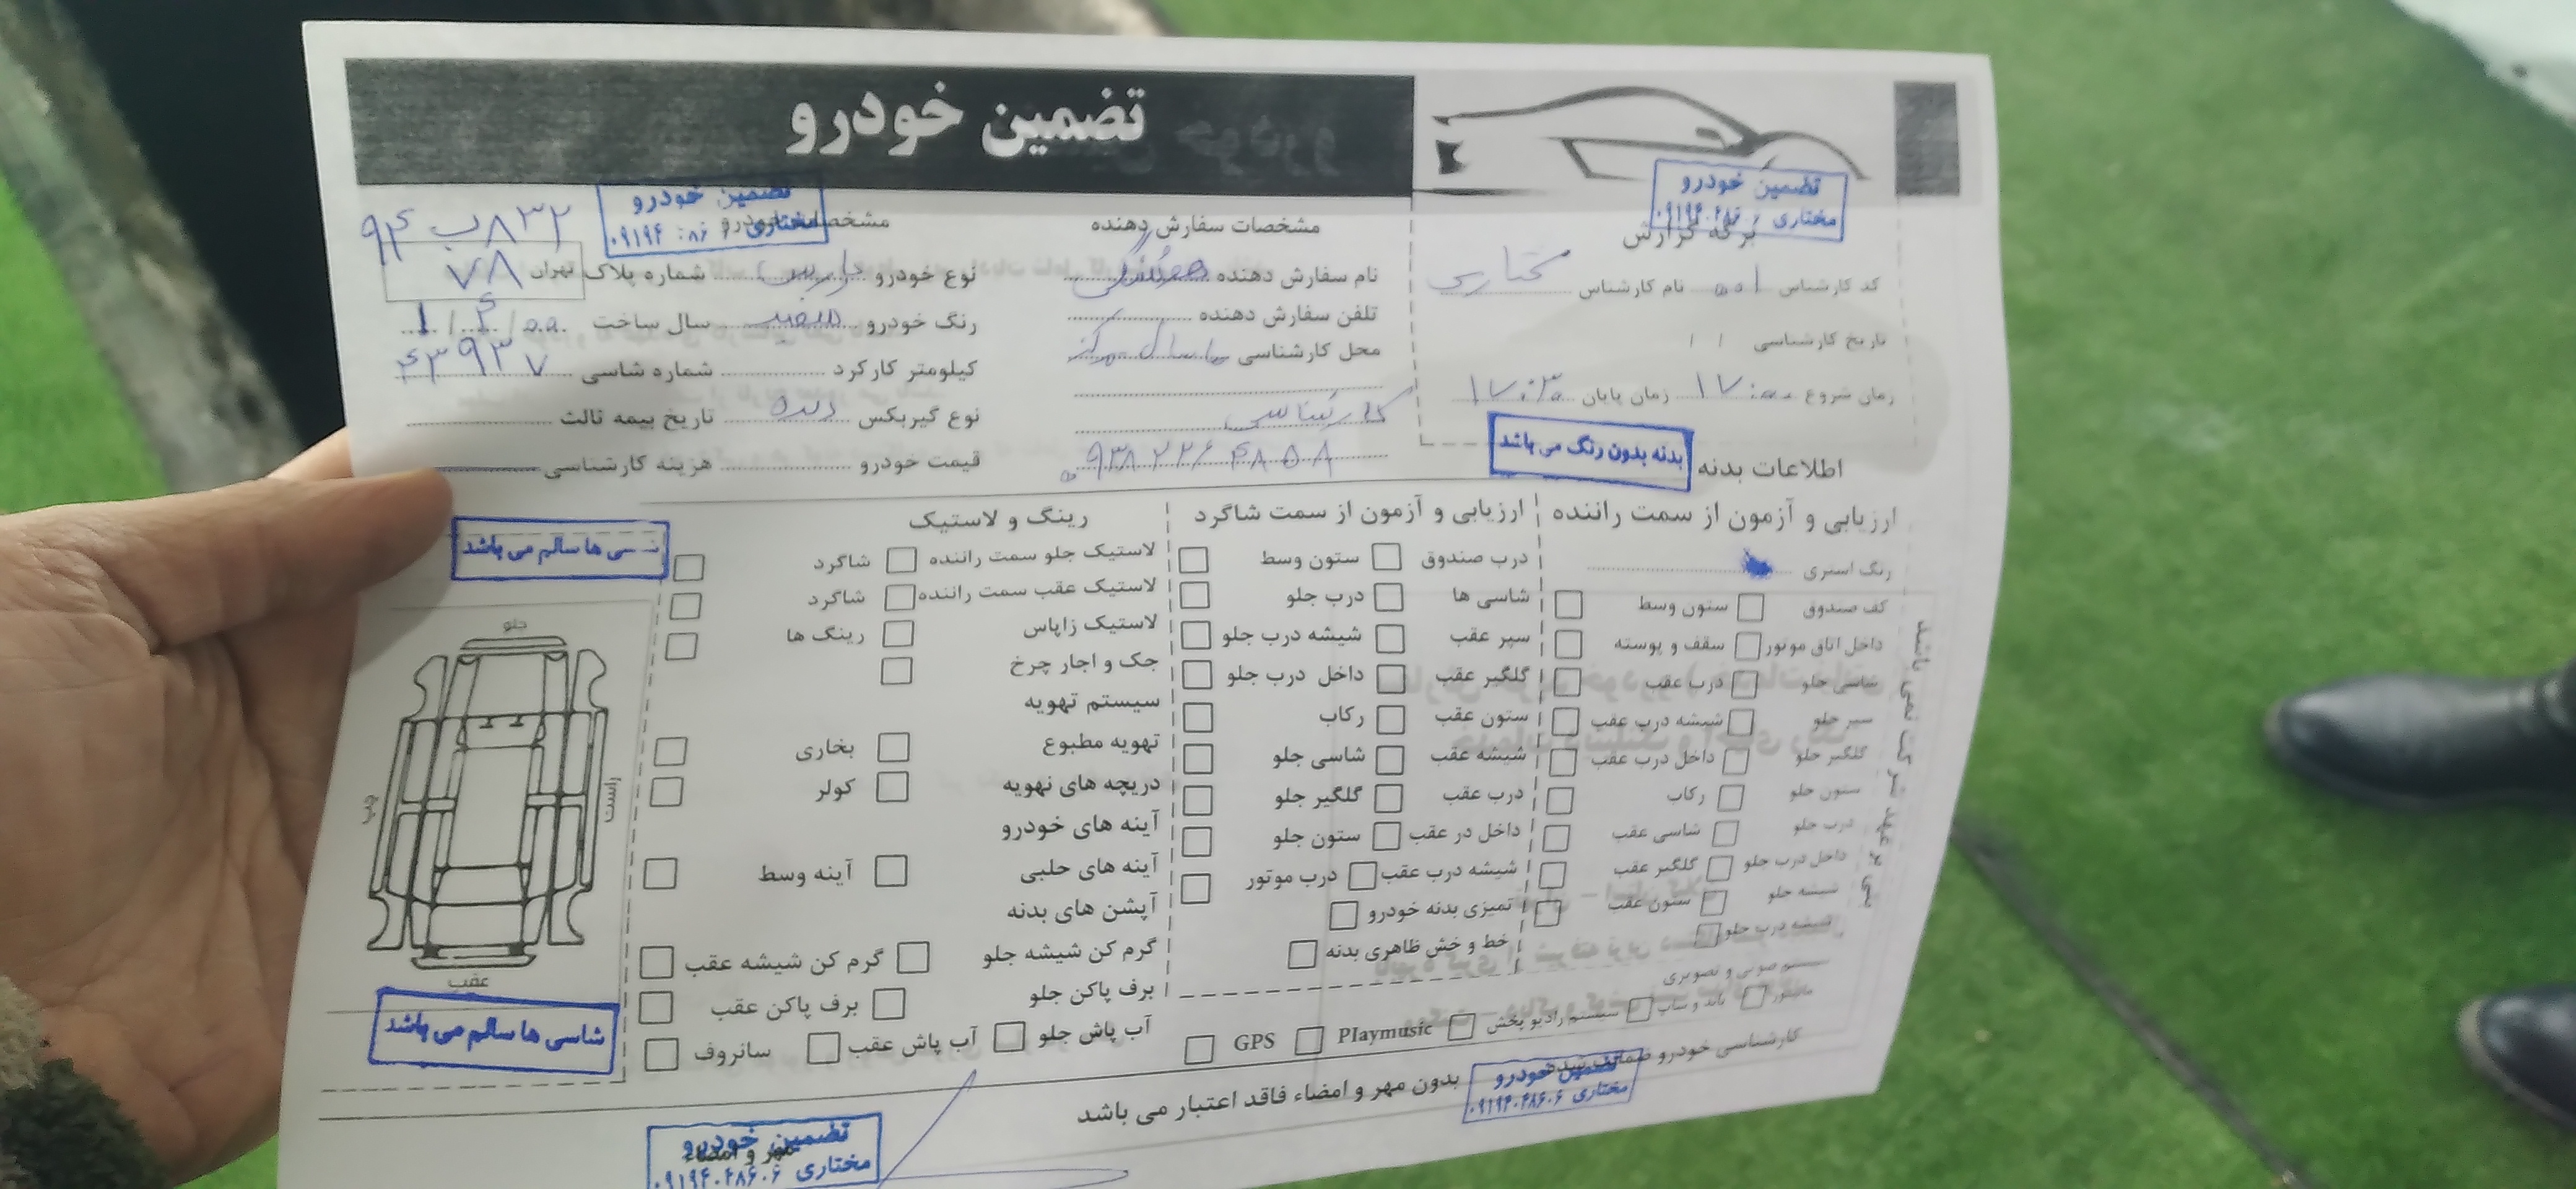 تضمین خودرو
تضمین خودرو
مختاری
برگه گزارش
کد کارشناس نام کارشناس مختاری
تاریخ کارشناسی / /
زمان شروع ۱۷:۰۰ زمان پایان ۱۷:۳۰
مشخصات سفارش دهنده
نام سفارش دهنده
تلفن سفارش دهنده
محل کارشناسی
کارشناسی
۰۹۳۸۲۲۶۴۸۵۸
تضمین خودرو
مختاری
مشخصات خودرو
۸۳۲ب۹۴
نوع خودرو پارس شماره پلاک تهران ۷۸
رنگ خودرو سفید سال ساخت
کیلومتر کارکرد شماره شاسی ۴۳۹۳۷
نوع گیربکس دنده تاریخ بیمه ثالث
قیمت خودرو هزینه کارشناسی
اطلاعات بدنه
بدنه بدون رنگ می باشد
ارزیابی و آزمون از سمت راننده
رنگ اسپری
کف صندوق ستون وسط
داخل اتاق موتور سقف و پوسته
شاسی جلو درب عقب
سپر جلو شیشه درب عقب
گلگیر جلو داخل درب عقب
ستون جلو رکاب
درب جلو شاسی عقب
داخل درب جلو گلگیر عقب
شیشه جلو ستون عقب
شیشه درب جلو
سیستم صوتی و تصویری
مانیتور باند و ساب سیستم رادیو پخش Playmusic GPS
ارزیابی و آزمون از سمت شاگرد
درب صندوق ستون وسط
شاسی ها درب جلو
سپر عقب شیشه درب جلو
گلگیر عقب داخل درب جلو
ستون عقب رکاب
شیشه عقب شاسی جلو
درب عقب گلگیر جلو
داخل در عقب ستون جلو
شیشه درب عقب درب موتور
تمیزی بدنه خودرو
خط و خش ظاهری بدنه
رینگ و لاستیک
لاستیک جلو سمت راننده شاگرد
لاستیک عقب سمت راننده شاگرد
لاستیک زاپاس رینگ ها
جک و اجار چرخ
سیستم تهویه
تهویه مطبوع بخاری
دریچه های تهویه کولر
آینه های خودرو
آینه های جلبی آینه وسط
آپشن های بدنه
گرم کن شیشه جلو گرم کن شیشه عقب
برف پاکن جلو برف پاکن عقب
آب پاش جلو آب پاش عقب سانروف
ها سالم می باشد
جلو
چپ
راست
عقب
شاسی ها سالم می باشد
کارشناسی خودرو
بدون مهر و امضاء فاقد اعتبار می باشد
تضمین خودرو
مختاری ۰۹۱۹۴۰۴۸۶۰۶
مهر و امضاء
تضمین خودرو
مختاری ۰۹۱۹۴۰۴۸۶۰۶